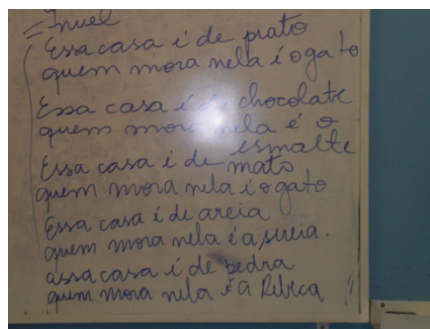 = Inuel
Essa casa i de prato
quem mora nela i o gato
Essa casa i de chocolate
quem mora nela é o
esmalte
Essa casa i de mato
quem mora nela i o gato
Essa casa i de areia
quem mora nela é a sireia.
assa casa i de pedra
quem mora nela é a Rebica